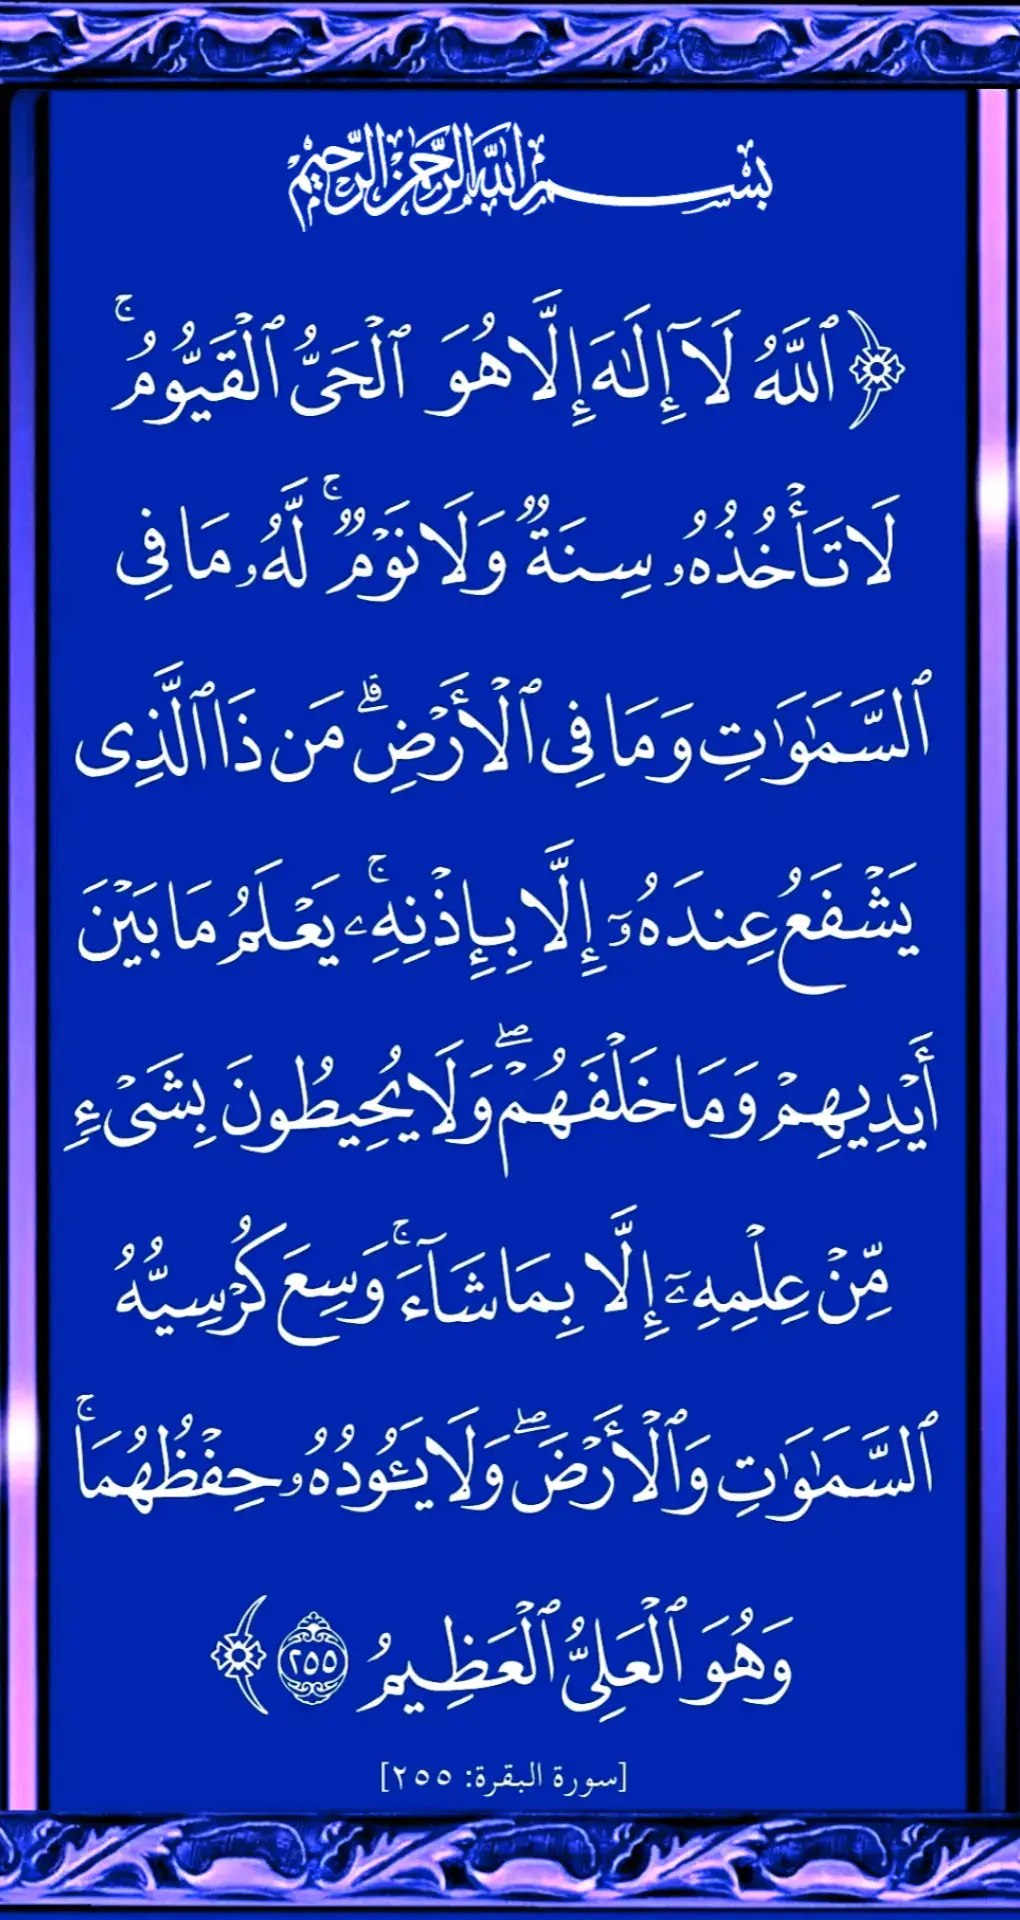 بِسْمِ اللَّهِ الرَّحْمَٰنِ الرَّحِيمِ
﴿ٱللَّهُ لَآ إِلَٰهَ إِلَّا هُوَ ٱلْحَىُّ ٱلْقَيُّومُ ۚ
لَا تَأْخُذُهُۥ سِنَةٌ وَلَا نَوْمٌ ۚ لَّهُۥ مَا فِى
ٱلسَّمَٰوَٰتِ وَمَا فِى ٱلْأَرْضِ ۗ مَن ذَا ٱلَّذِى
يَشْفَعُ عِندَهُۥٓ إِلَّا بِإِذْنِهِۦ ۚ يَعْلَمُ مَا بَيْنَ
أَيْدِيهِمْ وَمَا خَلْفَهُمْ ۖ وَلَا يُحِيطُونَ بِشَىْءٍ
مِّنْ عِلْمِهِۦٓ إِلَّا بِمَا شَآءَ ۚ وَسِعَ كُرْسِيُّهُ
ٱلسَّمَٰوَٰتِ وَٱلْأَرْضَ ۖ وَلَا يَـُٔودُهُۥ حِفْظُهُمَا ۚ
وَهُوَ ٱلْعَلِىُّ ٱلْعَظِيمُ ٢٥٥﴾
[سورة البقرة: ٢٥٥]